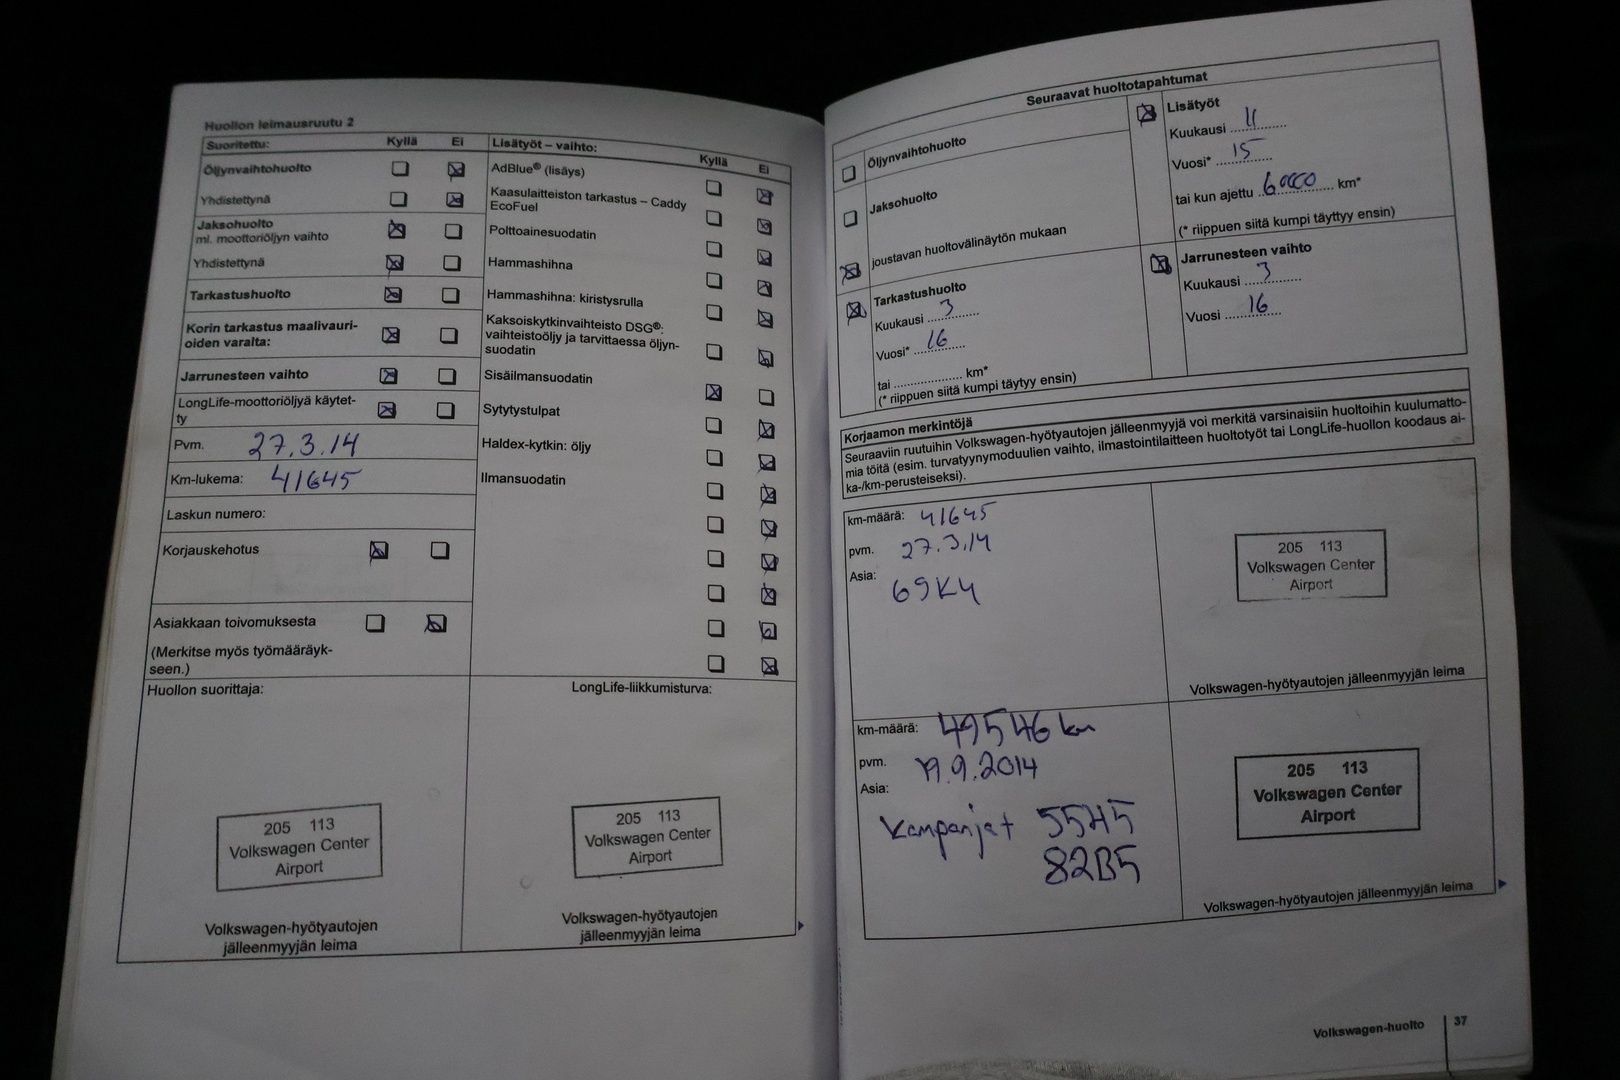 Huollon leimausruutu 2
Suoritettu: Kyllä Ei
Öljynvaihtohuolto
Yhdistettynä
Jaksohuolto
ml. moottoriöljyn vaihto
Yhdistettynä
Tarkastushuolto
Korin tarkastus maalivauri-
oiden varalta:
Jarrunesteen vaihto
LongLife-moottoriöljyä käytet-
ty
Pvm. 27.3.14
Km-lukema: 41645
Laskun numero:
Korjauskehotus
Asiakkaan toivomuksesta
(Merkitse myös työmääräyk-
seen.)
Huollon suorittaja:
205 113
Volkswagen Center
Airport
Volkswagen-hyötyautojen
jälleenmyyjän leima
Lisätyöt – vaihto: Kyllä Ei
AdBlue® (lisäys)
Kaasulaitteiston tarkastus – Caddy
EcoFuel
Polttoainesuodatin
Hammashihna
Hammashihna: kiristysrulla
Kaksoiskytkinvaihteisto DSG®:
vaihteistoöljy ja tarvittaessa öljyn-
suodatin
Sisäilmansuodatin
Sytytystulpat
Haldex-kytkin: öljy
Ilmansuodatin
LongLife-liikkumisturva:
205 113
Volkswagen Center
Airport
Volkswagen-hyötyautojen
jälleenmyyjän leima
Seuraavat huoltotapahtumat
Öljynvaihtohuolto
Jaksohuolto
joustavan huoltovälinäytön mukaan
Tarkastushuolto
Kuukausi 3
Vuosi* 16
tai .................... km*
(* riippuen siitä kumpi täytyy ensin)
Lisätyöt
Kuukausi 11
Vuosi* 15
tai kun ajettu 60000 km*
(* riippuen siitä kumpi täyttyy ensin)
Jarrunesteen vaihto
Kuukausi 3
Vuosi 16
Korjaamon merkintöjä
Seuraaviin ruutuihin Volkswagen-hyötyautojen jälleenmyyjä voi merkitä varsinaisiin huoltoihin kuulumatto-
mia töitä (esim. turvatyynymoduulien vaihto, ilmastointilaitteen huoltotyöt tai LongLife-huollon koodaus ai-
ka-/km-perusteiseksi).
km-määrä: 41645
pvm. 27.3.14
Asia:
69K4
205 113
Volkswagen Center
Airport
Volkswagen-hyötyautojen jälleenmyyjän leima
km-määrä: 49546 km
pvm. 19.9.2014
Asia:
Kampanjat 55H5
82B5
205 113
Volkswagen Center
Airport
Volkswagen-hyötyautojen jälleenmyyjän leima
Volkswagen-huolto 37